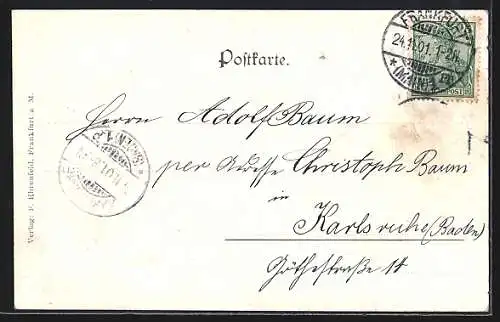 FRANKFURT
24.11.01.1-2N.
*(MAIN)
POST
Postkarte.
Herrn Adolf Baum
per Adresse Christoph Baum
in
Karlsruhe (Baden)
Göthestraße 14
Verlag: F. Ehrenfeld, Frankfurt a M.